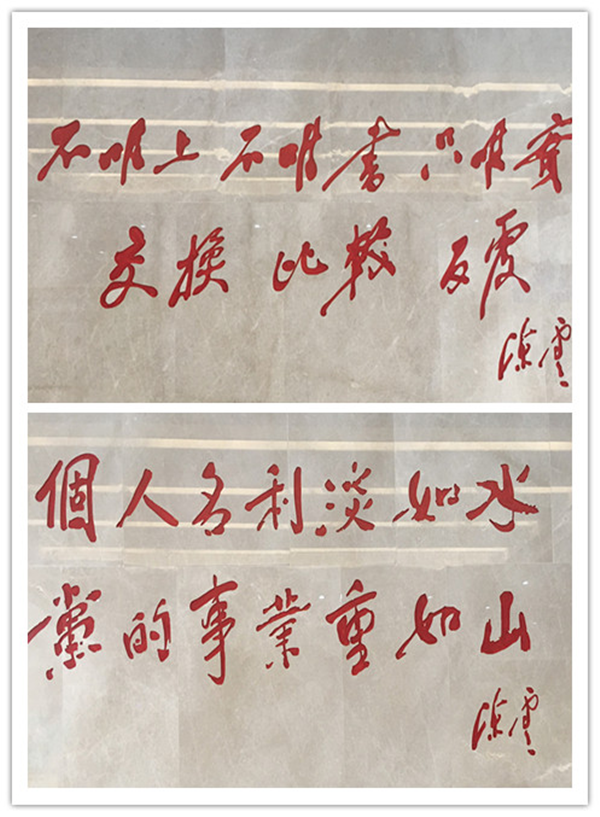 不唯上 不唯書 只唯實
交換 比較 反覆
陳雲
個人名利淡如水
黨的事業重如山
陳雲